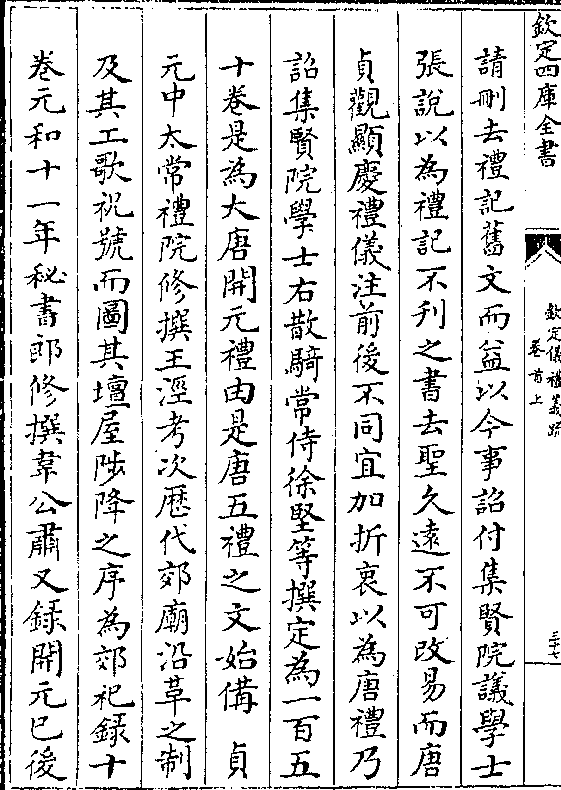 欽定四庫全書
欽定儀禮義疏
卷首上
三十七
請刪去禮記舊文而益以今事詔付集賢院議學士
張說以為禮記不刋之書去聖久遠不可改易而唐
貞觀顯慶禮儀注前後不同宜加折衷以為唐禮乃
詔集賢院學士右散騎常侍徐堅等撰定為一百五
十卷是為大唐開元禮由是唐五禮之文始備 貞
元中太常禮院修撰王涇考次歴代郊廟沿革之制
及其工歌祝號而圖其壇屋陟降之序為郊祀録十
卷元和十一年秘書郎修撰韋公肅又録開元已後